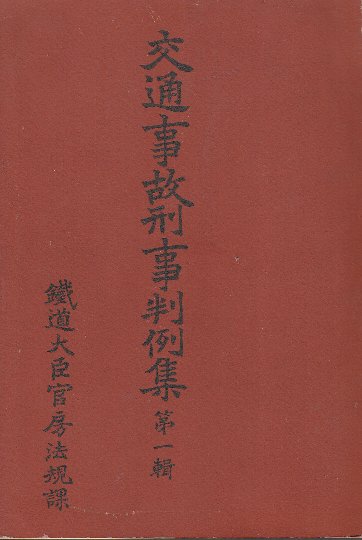 交通事故刑事判例集 第一輯
鐵道大臣官房法規課